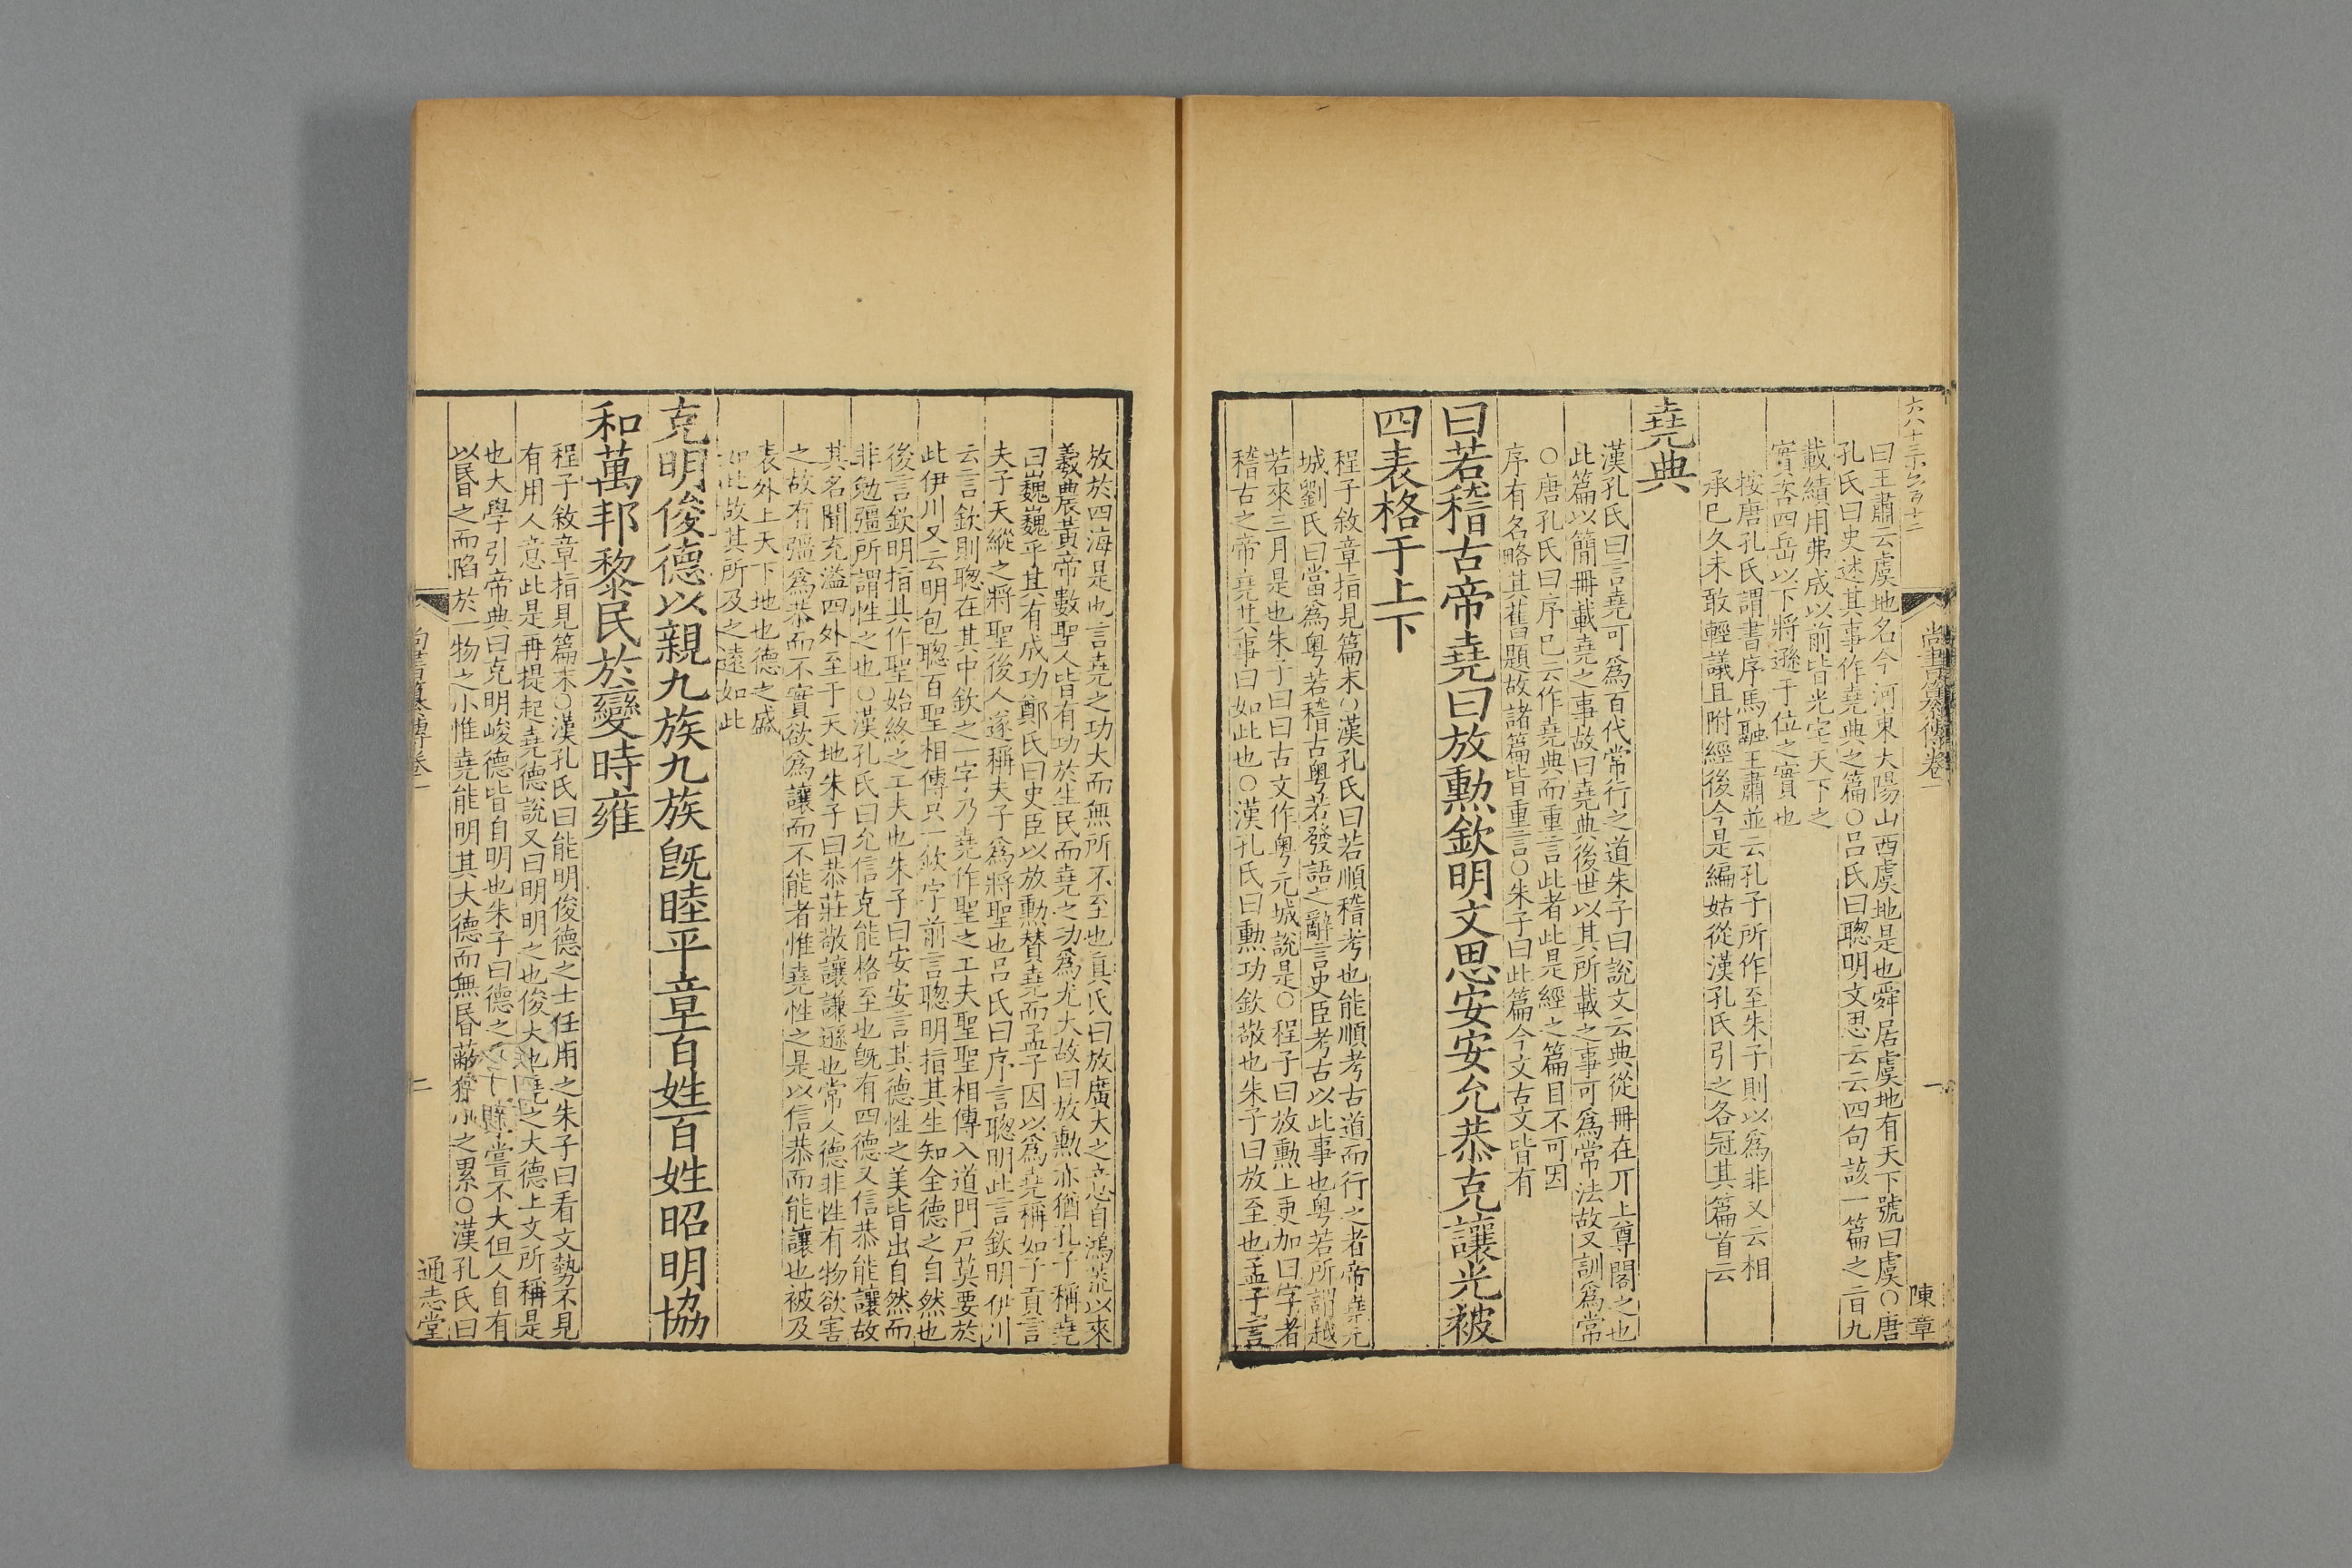 尚書纂傳卷一
一
陳章
曰王肅云虞地名今河東大陽山西虞地是也舜居虞地有天下號曰虞○唐
孔氏曰史述其事作堯典之篇○呂氏曰聰明文思云云四句該一篇之㫖九
載績用弗成以前皆光宅天下之
實咨四岳以下將遜于位之實也
按唐孔氏謂書序馬融王肅並云孔子所作至朱子則以爲非又云相
承已久未敢輕議且附經後今是編姑從漢孔氏引之各冠其篇首云
堯典
漢孔氏曰言堯可爲百代常行之道朱子曰說文云典從冊在丌上尊閣之也
此篇以簡冊載堯之事故曰堯典後世以其所載之事可爲常法故又訓爲常
○唐孔氏曰序已云作堯典而重言此者此是經之篇目不可因
序有名略其舊題故諸篇皆重言○朱子曰此篇今文古文皆有
曰若稽古帝堯曰放勲欽明文思安安允恭克讓光被
四表格于上下
程子敘章指見篇末○漢孔氏曰若順稽考也能順考古道而行之者帝堯元
城劉氏曰當爲粤若稽古粤若發語之辭言史臣考古以此事也粤若所謂越
若來三月是也朱子曰曰古文作粤元城說是○程子曰放勲上更加曰字者
稽古之帝堯其事曰如此也○漢孔氏曰勲功欽敬也朱子曰放至也孟子言
放於四海是也言堯之功大而無所不至也眞氏曰放廣大之意自鴻荒以來
羲農黃帝數聖人皆有功於生民而堯之功爲尤大故曰放勲亦猶孔子稱堯
曰巍巍乎其有成功鄭氏曰史臣以放勲賛堯而孟子因以爲堯稱如子貢言
夫子天縱之將聖後人遂稱夫子爲將聖也呂氏曰序言聰明此言欽明伊川
云言欽則聰在其中欽之一字乃堯作聖之工夫聖聖相傳入道門戸莫要於
此伊川又云明包聰百聖相傳只一欽字前言聰明指其生知全德之自然也
後言欽明指其作聖始終之工夫也朱子曰安安言其德性之美皆出自然而
非勉彊所謂性之也○漢孔氏曰允信克能格至也旣有四德又信恭能讓故
其名聞充溢四外至于天地朱子曰恭莊敬讓謙遜也常人德非性有物欲害
之故有彊爲恭而不實欲爲讓而不能者惟堯性之是以信恭而能讓也被及
表外上天下地也德之盛
如此故其所及之遠如此
克明俊德以親九族九族旣睦平章百姓百姓昭明協
和萬邦黎民於變時雍
程子敘章指見篇末○漢孔氏曰能明俊德之士任用之朱子曰看文勢不見
有用人意此是再提起堯德說又曰明明之也俊大也堯之大德上文所稱是
也大學引帝典曰克明峻德皆自明也朱子曰德之嘗不大但人自有
以昬之而陷於一物之小惟堯能明其大德而無昬蔽狹小之累○漢孔氏曰
尚書纂傳卷一
二
通志堂